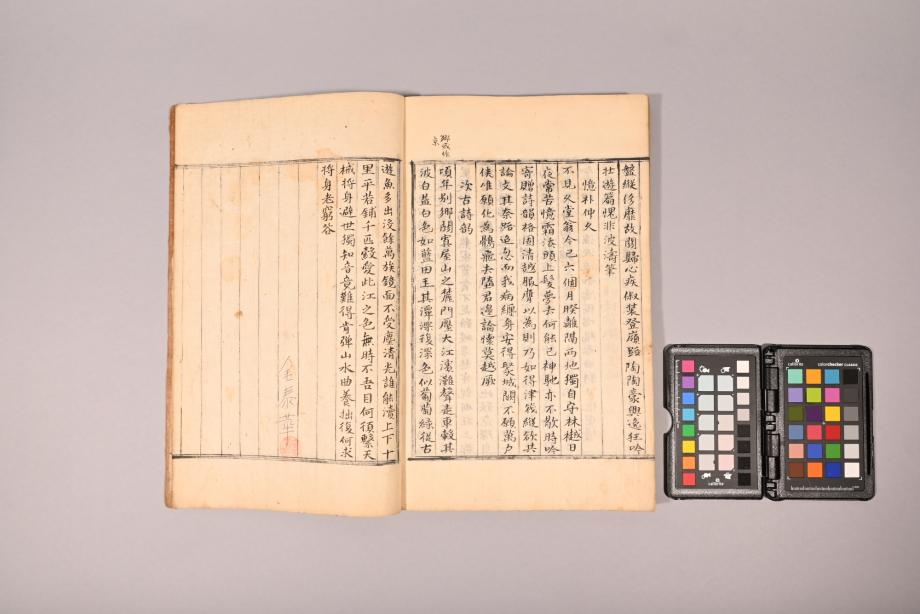 盤縱侈靡故關歸心疾俶裝登巖路陶陶豪興逸狂吟
壯遊篇愧非波濤筆
憶朴仲久
不見久堂翁今已六個月暌離隔両地獨自守林樾日
夜常若憶霜落頭上髮夢去何能已神馳亦不歇時吟
寄贈詩韻格固清越服膺以為則乃如得津筏縱欲共
論文其奈路迢忽而我病纏身安得聚城關不願萬戶
侯唯願化為鶻飛去陪君邊論懷莫越厥
次古詩韵
頃年別鄉關寓屋山之麓門壓大江濱灘聲走車轂其
波白益白色如藍田玉其潭深復深色似葡萄綠從古
遊魚多出沒餘萬族鏡面不受塵清光誰能瀆上下十
里平若鋪千匹縠愛此江之色無時不吾目何須繫天
械將身避世獨知音竟難得肯彈山水曲養拙復何求
將身老窮谷
金泰華
colorchecker CLASSIC
calibrite